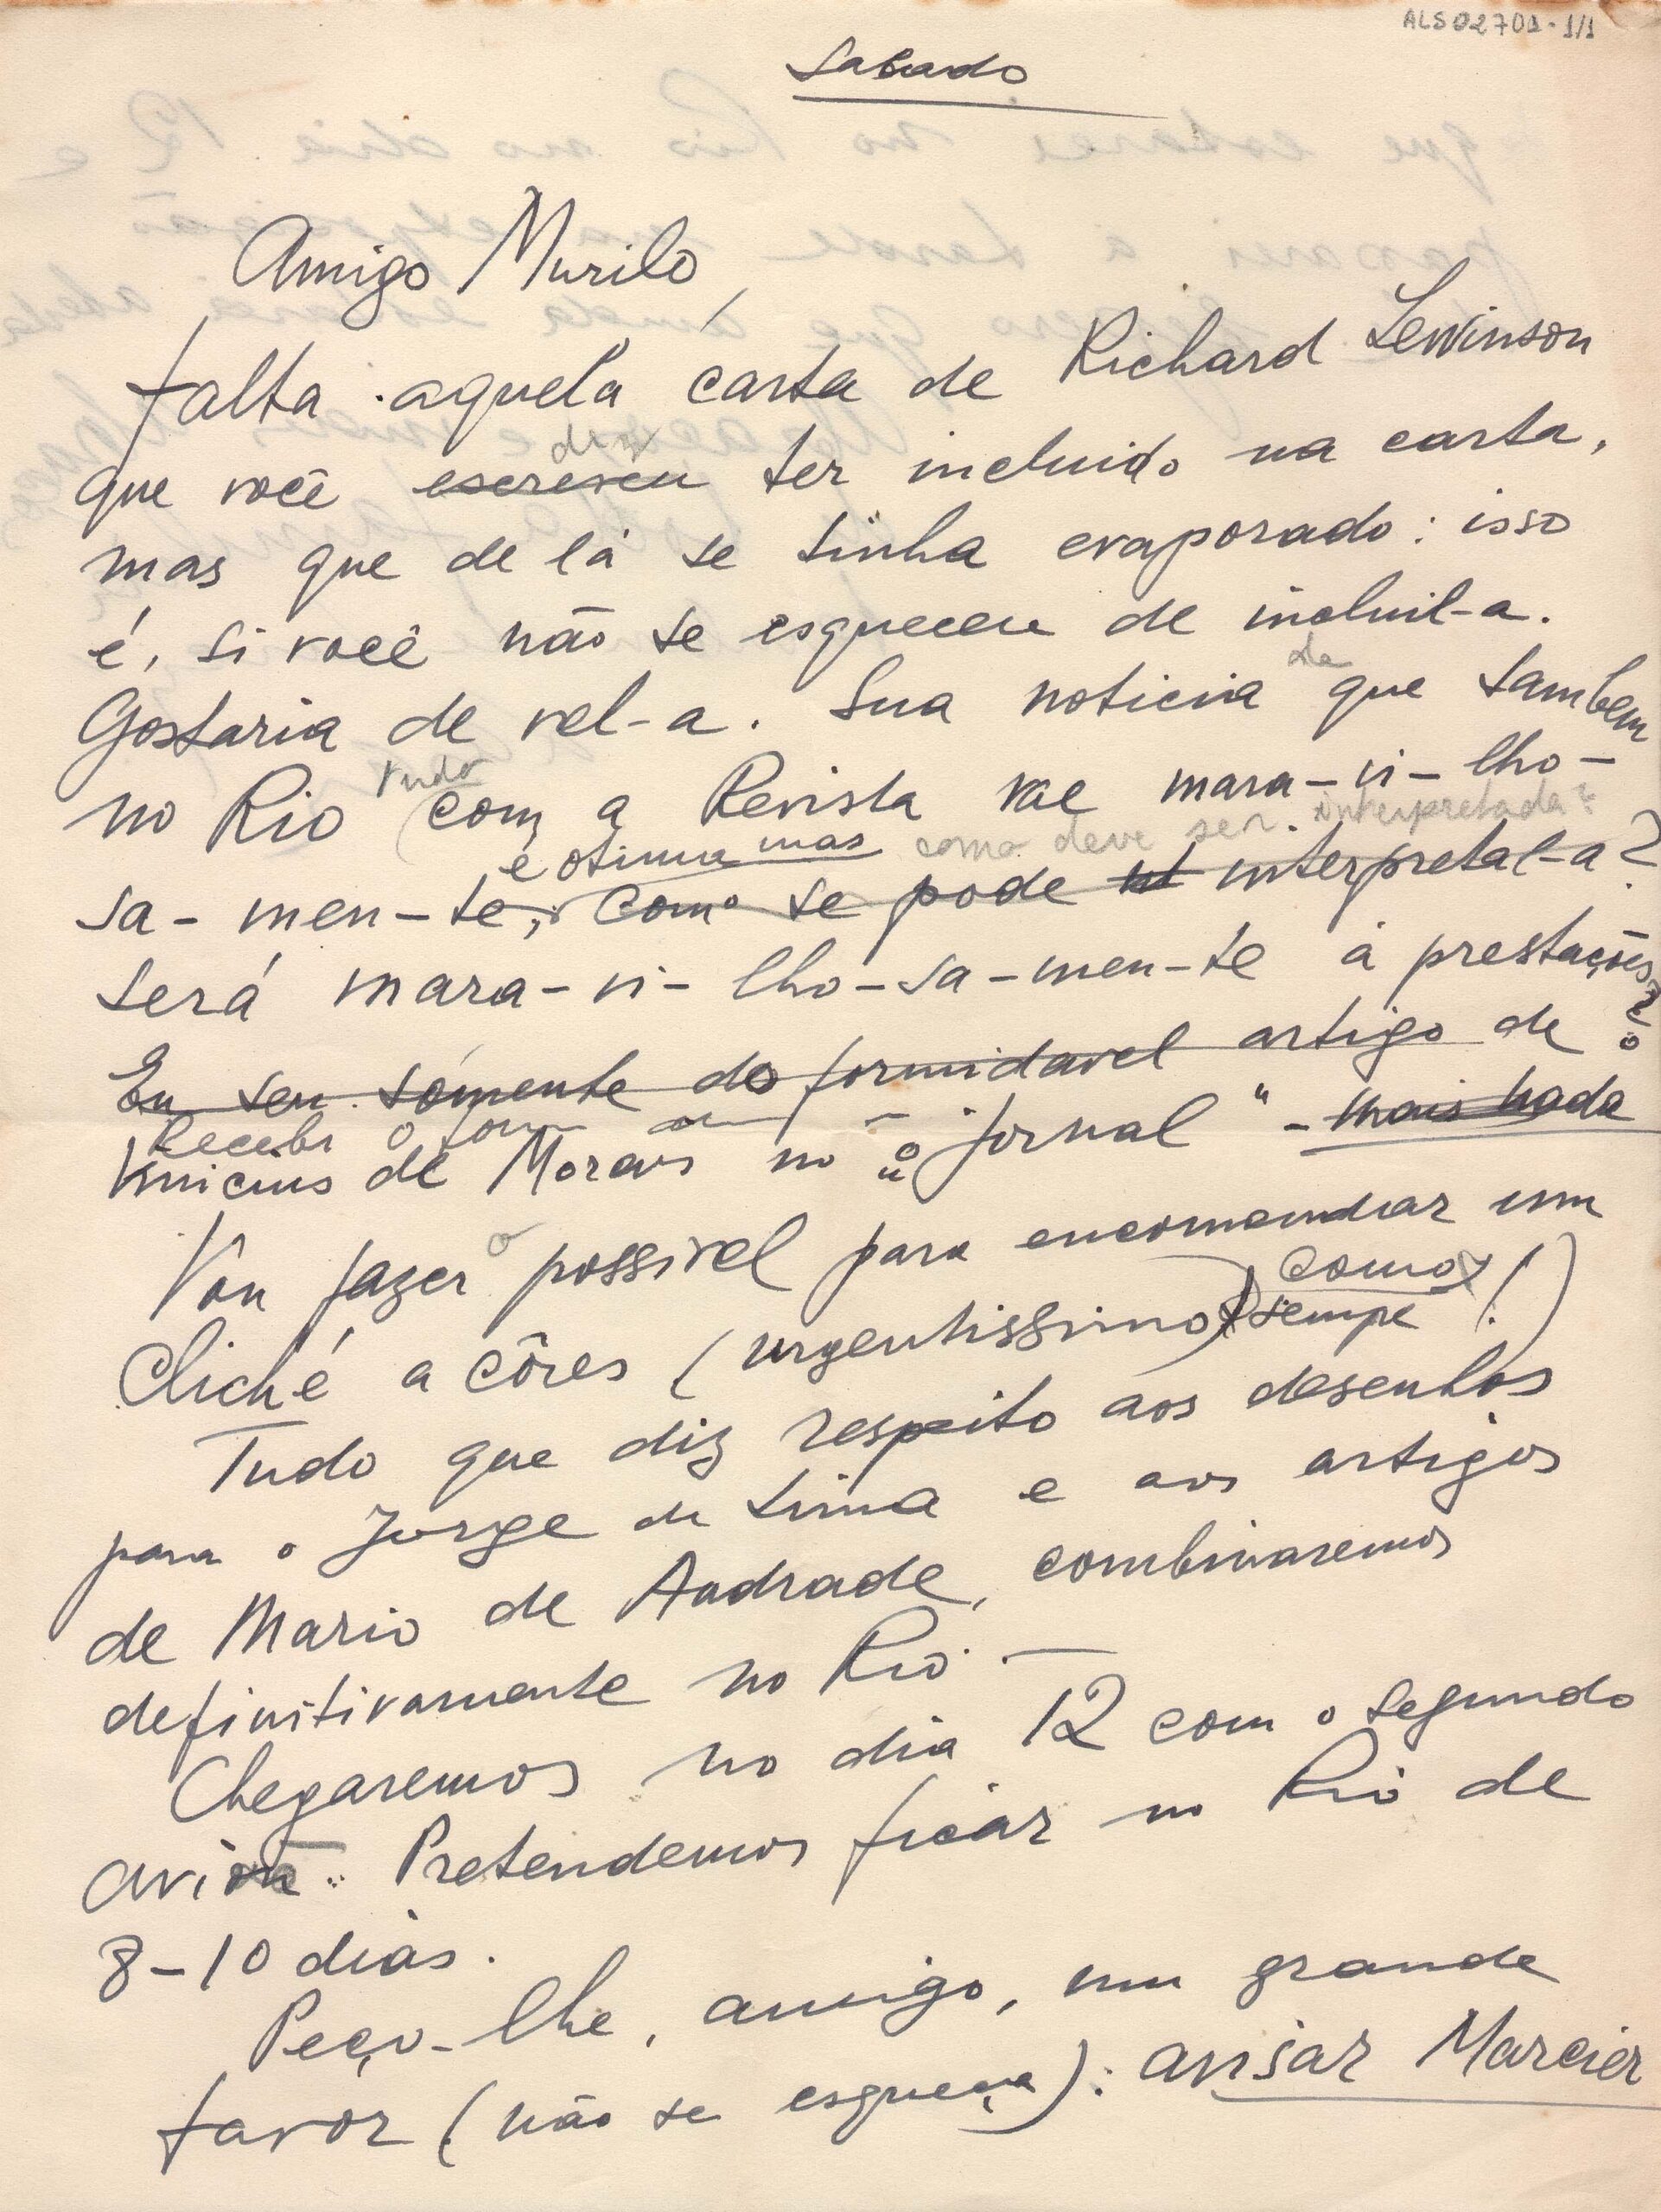 ALS02701-1/1
Sabado
Amigo Murilo,
falta aquela carta de Richard Lewinson
diz
que você escreveu ter incluido na carta,
mas que de lá se tinha evaporado: isso
é, si você não se esqueceu de incluil-a.
de
Gostaria de vel-a. Sua noticia que tambem
tudo
no Rio com a Revista vae mara-vi-lho-
é otima mas como deve ser interpretada?
sa-men-te, Como se pode interpretal-a?
será mara-vi-lho-sa-men-te á prestações?
Eu sei sómente do formidavel artigo de
Recebi o
Vinicius de Morais no "O Jornal" - mais nada
o
Vou fazer possivel para encomendar um
como
Cliché a côres (urgentissimo) sempe (!)
Tudo que diz respeito aos desenhos
para o Jorge de Lima e aos artigos
de Mario de Andrade, combinaremos
definitivamente no Rio. —
Chegaremos no dia 12 com o segundo
avión. Pretendemos ficar no Rio de
8-10 dias.
Peço-lhe, amigo, um grande
favor (não se esqueça): avisar Marcier